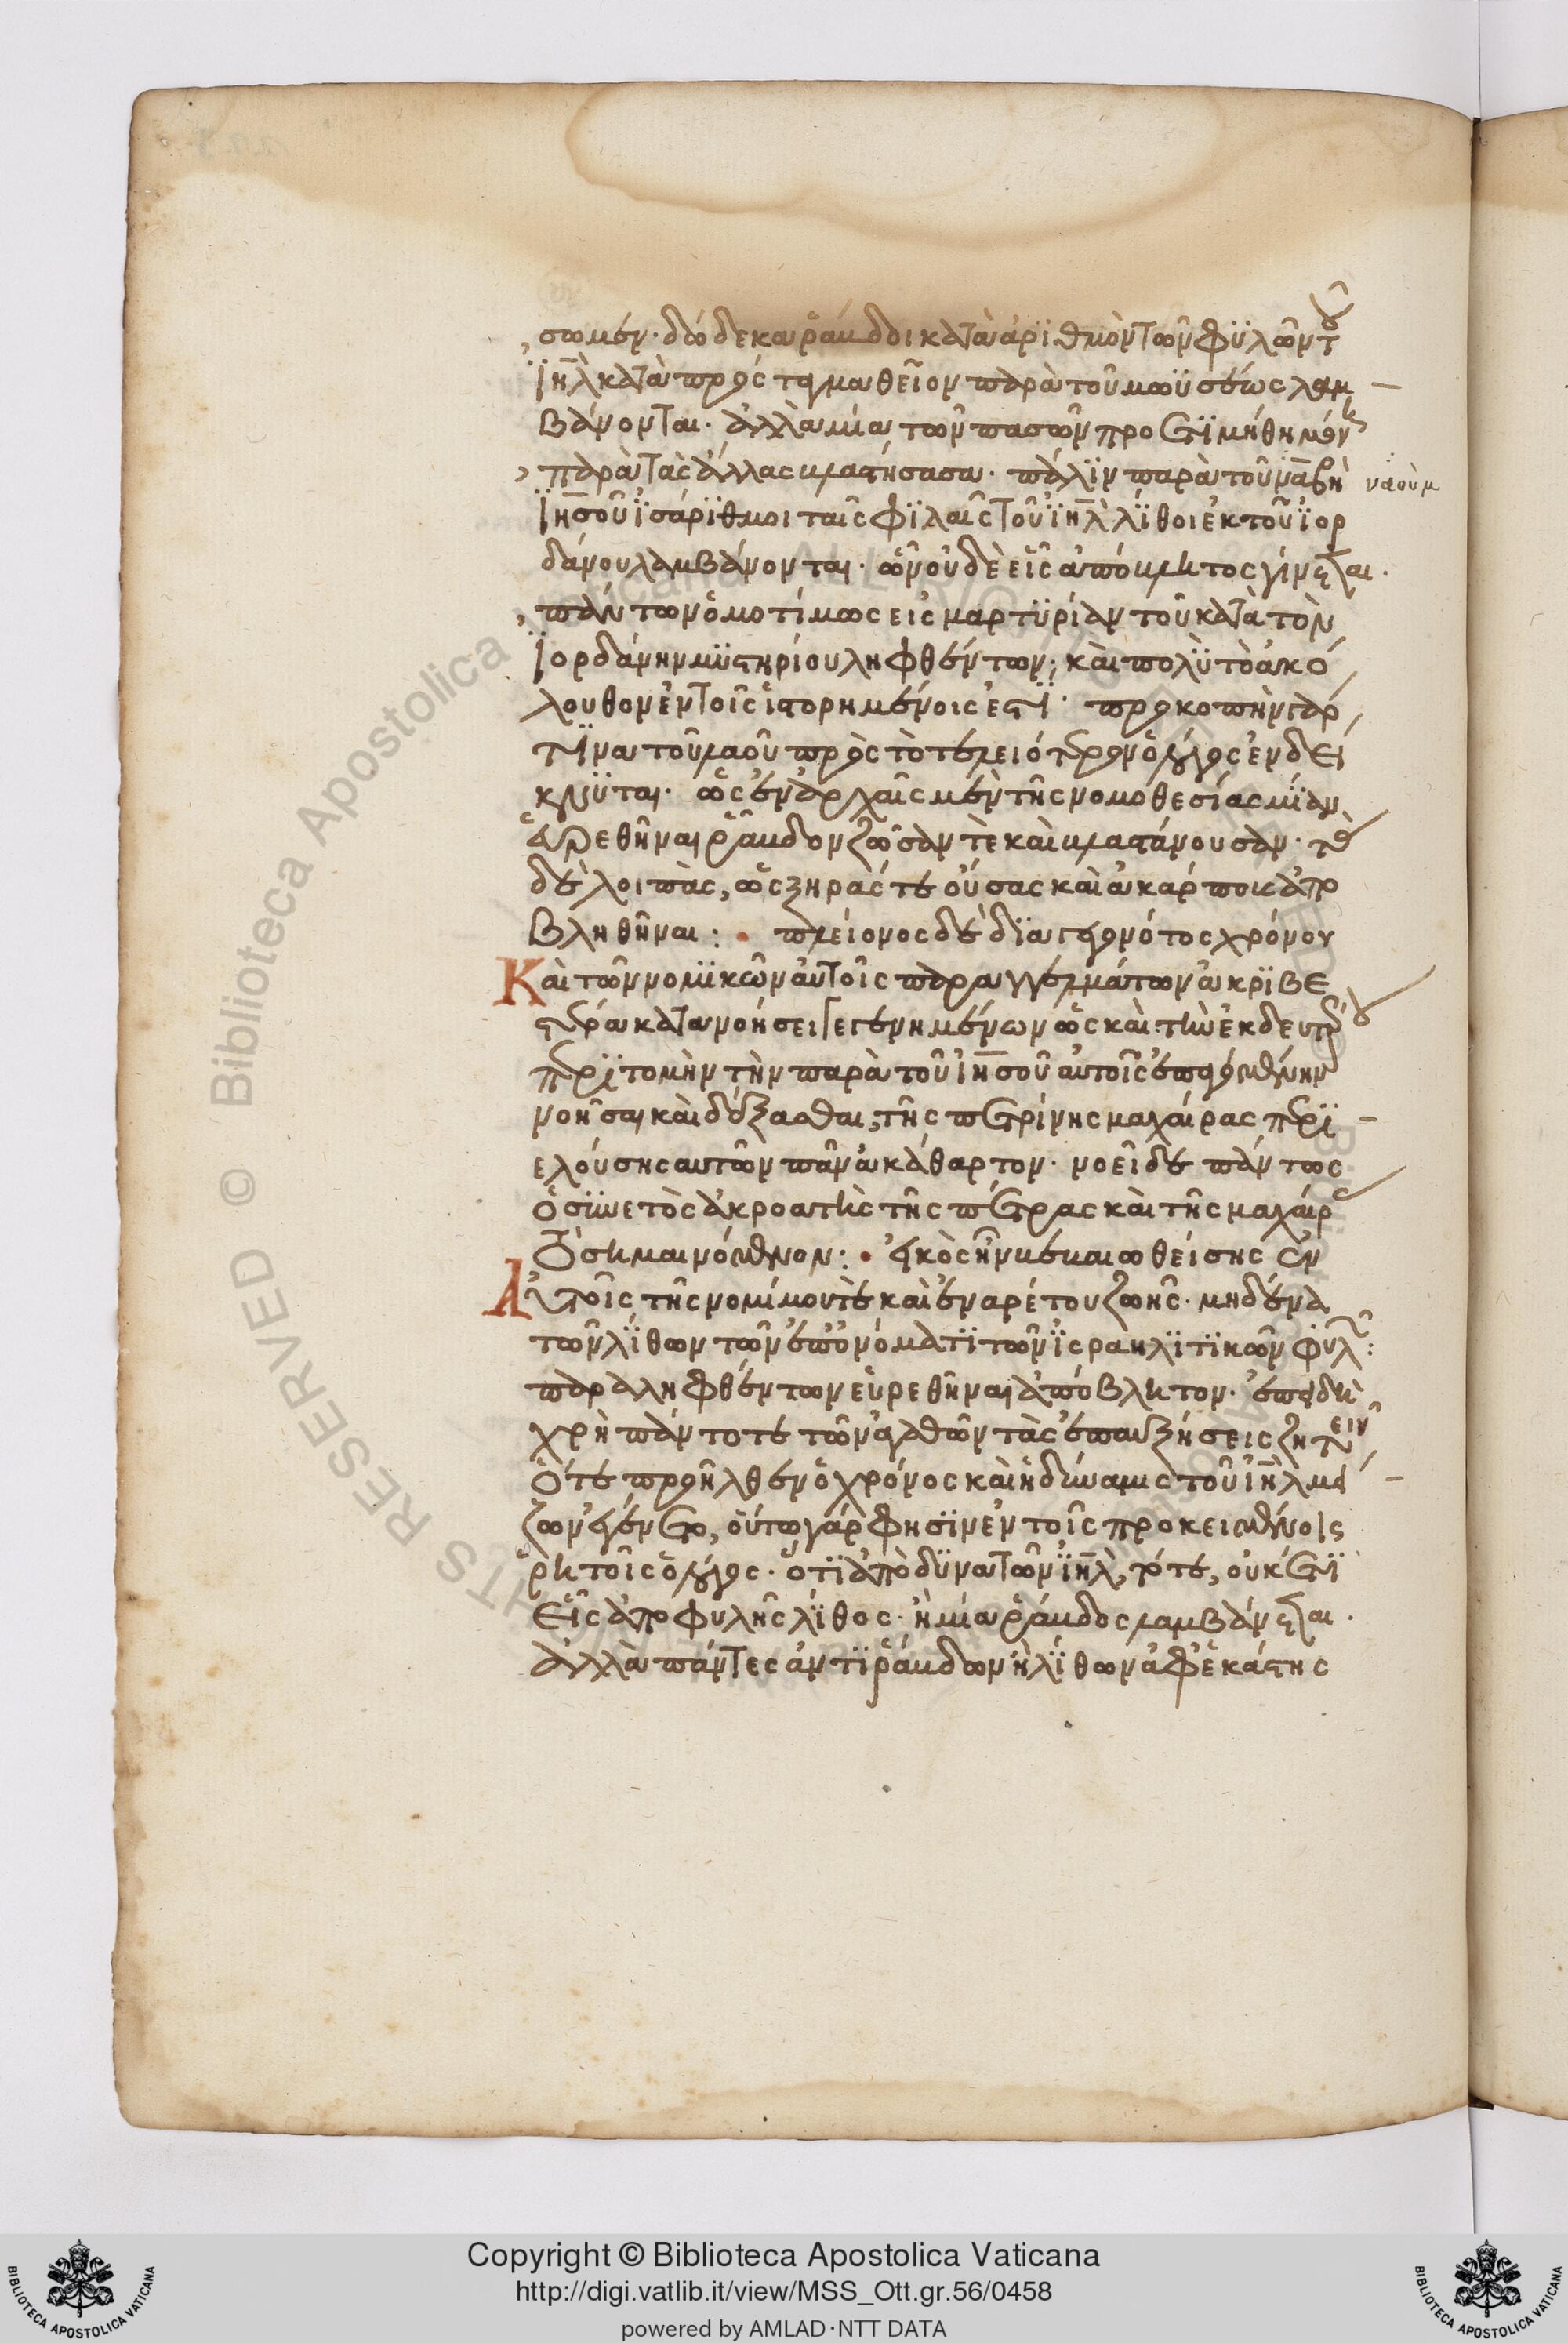 σωμεν· δώδεκα ῥάβδοι κατὰ ἀριθμὸν τῶν φϋλῶν τοῦ
ϊηλ κατὰ πρόσταγμα θεῖον παρὰ τοῦ μωϋσέως λαμ
βάνονται· ἀλλὰ μία τῶν πασῶν προετϊμήθη μόνη
παρὰ τὰς ἄλλας βλαστήσασα· πάλϊν παρὰ τοῦ ναβὴ ναοὺμ
ϊησοῦ ϊσάρϊθμοι ταῖς φϊλαῖς τοῦ ϊηλ λίθοι ἐκ τοῦ ϊορ
δάνου λαμβάνονται· ὧν οὐδὲ εἷς ἀπόβλητος γίνεται·
πάντων ὁμοτίμως εις μαρτϋρίαν τοῦ κατὰ τὸν
ϊορδάνην μϋστηρίου ληφθέντων· καὶ πολϋ τὸ ἀκό
λουθον ἐν τοῖς ἱστορημένοις ἐστί· προκοπὴν γάρ
τινα τοῦ λαοῦ πρὸς τὸ τελειότερον ὁ λόγος ἐνδεί
κνϋται· ὡς ἐν ἀρχαῖς μὲν τῆς νομοθεσίας μίαν
εὑρεθῆναι ῥάβδον ζῶσαν τὲ καὶ βλαστάνουσαν· τὰς
δὲ λοιπὰς, ὡς ξηράς τε οὔσας καὶ ἀκάρπους ἀπο
βληθῆναι: πλείονος δὲ δϊαγεγονότος χρόνου
Καὶ τῶν νομϊκῶν αὐτοῖς παραγγελμάτων ἀκρϊβε
στέρα κατανοήσει γεγενημένων ὡς καὶ τὴν ἐκ δευτέρου
περϊτομὴν τὴν παρὰ τοῦ ϊησοῦ αὐτοῖς ἐπαγομένην
νοῆσαι καὶ δέξασθαι, τῆς πετρίνης μαχαίρας περϊ
ελούσης αυτῶν πᾶν ἀκάθαρτον· νοεῖ δὲ πάντως
ὁ σϋνετὸς ἀκροατὴς τῆς πέτρας καὶ τῆς μαχαίρας
τὸ σημαινόμενον: εἰκὸς ἦν βεβαιωθείσης ἐν
Αὐτοῖς τῆς νομίμου τὲ καὶ ἐναρέτου ζωῆς· μηδένα
τῶν λΐθων τῶν ἐπ' ὀνόματϊ τῶν ϊσραηλϊτϊκῶν φϋλῶν:
παραληφθέντων εὑρεθῆναι ἀπόβλητον· ἐπειδὴ
χρὴ πάντοτε τῶν ἀγαθῶν τὰς ἐπαυξήσεις ζητεῖν
ὅτε προῆλθεν ὁ χρόνος καὶ ἡ δύναμις τοῦ ϊηλ μεί
ζων ἐγένετο, οὕτω γάρ φησϊν ἐν τοῖς προκειμένοις
ῥητοῖς ὁ λόγος· ὅτϊ ἀπὸ δϋνατῶν ϊηλ, τότε, οὐκέτϊ
εἷς ἀπὸ φυλῆς λίθος· ἢ μία ῥάβδος λαμβάνεται·
ἀλλὰ πάντες ἀντϊ ῥάβδων ἢ λΐθων ἀφ' ἑκάστης
Copyright © Biblioteca Apostolica Vaticana
http://digi.vatlib.it/view/MSS_Ott.gr.56/0458
powered by AMLAD·NTT DATA